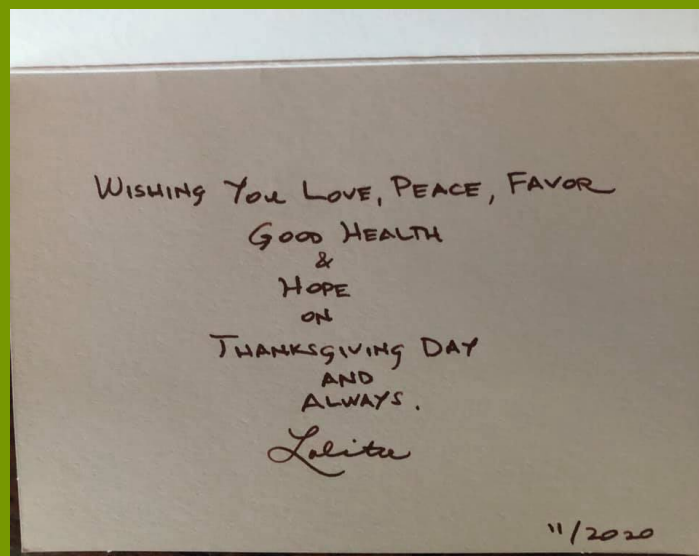 WISHING YOU LOVE, PEACE, FAVOR
GOOD HEALTH
&
HOPE
ON
THANKSGIVING DAY
AND
ALWAYS.
Lolita
11/2020